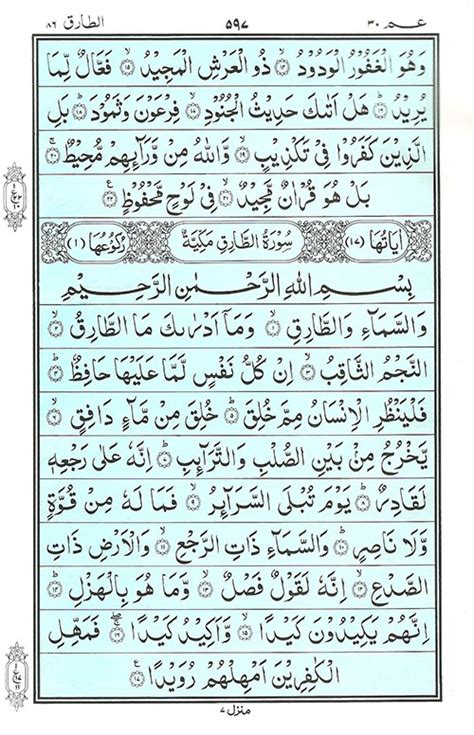 عـم ٣٠ ٥٩٧ الطارق ٨٦
وَهُوَ الْغَفُوْرُ الْوَدُوْدُ ۝١٤ ذُو الْعَرْشِ الْمَجِيْدُ ۝١٥ فَعَّالٌ لِّمَا
يُرِيْدُ ۝١٦ هَلْ اَتٰىكَ حَدِيْثُ الْجُنُوْدِ ۝١٧ فِرْعَوْنَ وَثَمُوْدَ ۝١٨ بَلِ
الَّذِيْنَ كَفَرُوْا فِيْ تَكْذِيْبٍ ۝١٩ وَّاللّٰهُ مِنْ وَّرَآىِٕهِمْ مُّحِيْطٌ ۝٢٠
بَلْ هُوَ قُرْاٰنٌ مَّجِيْدٌ ۝٢١ فِيْ لَوْحٍ مَّحْفُوْظٍ ۝٢٢
اٰيَاتُهَا (١٧) سُوْرَةُ الطَّارِقِ مَكِّيَّةٌ رُكُوْعُهَا (١)
بِسْمِ اللّٰهِ الرَّحْمٰنِ الرَّحِيْمِ
وَالسَّمَآءِ وَالطَّارِقِ ۝١ وَمَآ اَدْرٰىكَ مَا الطَّارِقُ ۝٢
النَّجْمُ الثَّاقِبُ ۝٣ اِنْ كُلُّ نَفْسٍ لَّمَّا عَلَيْهَا حَافِظٌ ۝٤
فَلْيَنْظُرِ الْاِنْسَانُ مِمَّ خُلِقَ ۝٥ خُلِقَ مِنْ مَّآءٍ دَافِقٍ ۝٦
يَّخْرُجُ مِنْۢ بَيْنِ الصُّلْبِ وَالتَّرَآىِٕبِ ۝٧ اِنَّهٗ عَلٰى رَجْعِهٖ
لَقَادِرٌ ۝٨ يَوْمَ تُبْلَى السَّرَآىِٕرُ ۝٩ فَمَا لَهٗ مِنْ قُوَّةٍ
وَّلَا نَاصِرٍ ۝١٠ وَالسَّمَآءِ ذَاتِ الرَّجْعِ ۝١١ وَالْاَرْضِ ذَاتِ
الصَّدْعِ ۝١٢ اِنَّهٗ لَقَوْلٌ فَصْلٌ ۝١٣ وَّمَا هُوَ بِالْهَزْلِ ۝١٤
اِنَّهُمْ يَكِيْدُوْنَ كَيْدًا ۝١٥ وَّاَكِيْدُ كَيْدًا ۝١٦ فَمَهِّلِ
الْكٰفِرِيْنَ اَمْهِلْهُمْ رُوَيْدًا ۝١٧
منزل ٧